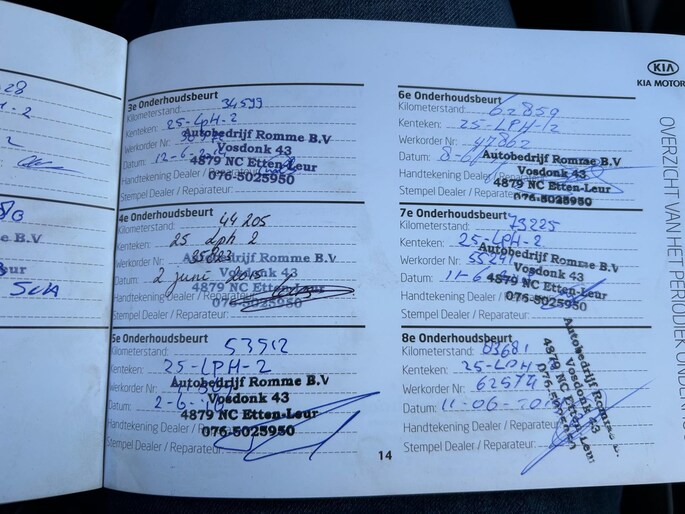 28
KIA
KIA MOTOR
OVERZICHT VAN HET PERIODIEK ONDERHO
3e Onderhoudsbeurt
Kilometerstand: 34599
Kenteken: 25-Lph-2
Werkorder Nr.
Datum: 12-6-
Handtekening Dealer / Reparateur:
Stempel Dealer / Reparateur:
Autobedrijf Romme B.V
Vosdonk 43
4879 NC Etten-Leur
076-5025950
4e Onderhoudsbeurt
Kilometerstand: 44205
Kenteken: 25 Lph 2
Werkorder Nr.
Datum: 2 juni 2015
Handtekening Dealer / Reparateur:
Stempel Dealer / Reparateur:
Autobedrijf Romme B.V
Vosdonk 43
4879 NC Etten-Leur
076-5025950
5e Onderhoudsbeurt
Kilometerstand: 53512
Kenteken: 25-LPH-2
Werkorder Nr.
Datum: 2-6-
Handtekening Dealer / Reparateur:
Stempel Dealer / Reparateur:
Autobedrijf Romme B.V
Vosdonk 43
4879 NC Etten-Leur
076-5025950
6e Onderhoudsbeurt
Kilometerstand: 62859
Kenteken: 25-LPH-2
Werkorder Nr: 47862
Datum:
Handtekening Dealer / Reparateur:
Stempel Dealer / Reparateur:
Autobedrijf Romme B.V
Vosdonk 43
4879 NC Etten-Leur
076-5025950
7e Onderhoudsbeurt
Kilometerstand: 73225
Kenteken: 25-LPH-2
Werkorder Nr: 55291
Datum: 11-6
Handtekening Dealer / Reparateur:
Stempel Dealer / Reparateur:
Autobedrijf Romme B.V
Vosdonk 43
4879 NC Etten-Leur
076-5025950
8e Onderhoudsbeurt
Kilometerstand: 83681
Kenteken: 25-LPH
Werkorder Nr: 62574
Datum: 11-06-201
Handtekening Dealer / Reparateur:
Stempel Dealer / Reparateur:
Autobedrijf Romme B.
Vosdonk 43
4879 NC Etten-Leur
14